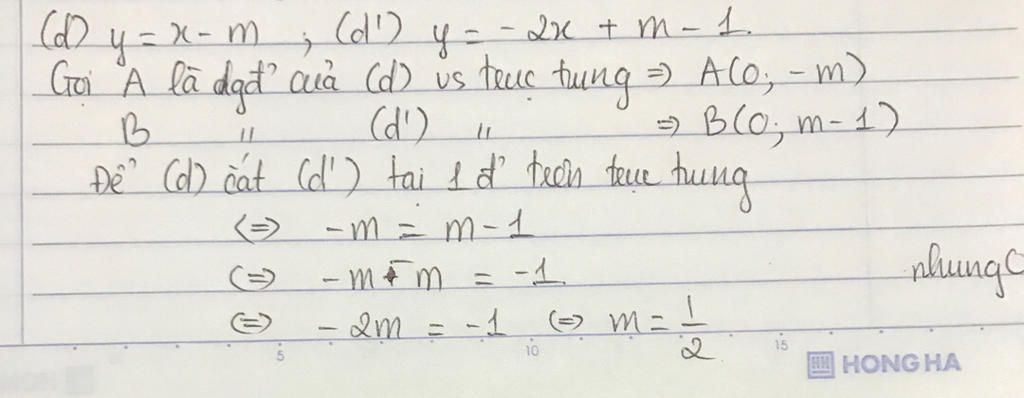 (d) y = x - m ; (d') y = -2x + m - 1.
Gọi A là dgđ' của (d) vs trục tung ⇒ A(0; -m)
B " (d') " ⇒ B(0; m-1)
Để (d) cắt (d') tại 1 đ' trên trục tung
⇔ -m = m - 1
⇔ -m - m = -1.
nhung
⇔ -2m = -1 ⇔ m = 1/2
5 10 15
HONG HA